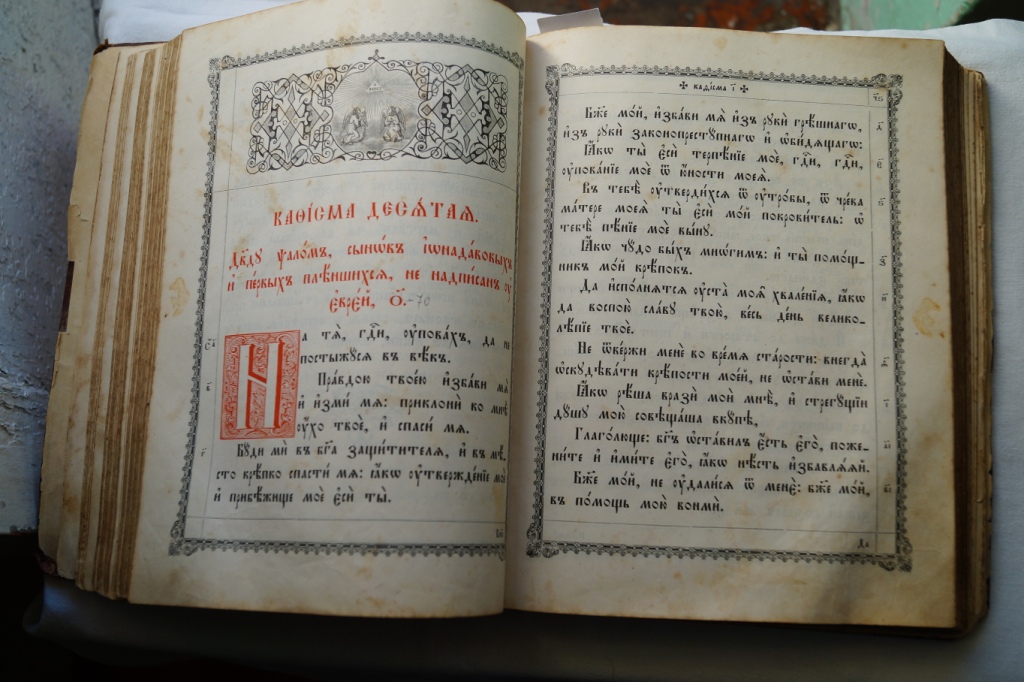 КАѲІ́СМА ДЕСѦ́ТАѦ.
Дв҃ду ѱало́мъ, сынѡ́въ і҆ѡнада́вовыхъ
и҆ пе́рвыхъ плѣ́ншихсѧ, не надпи́санъ ᲂу҆
є҆врє́й, ѻ҃.-70
На тѧ̀, гдⷭ҇и, ᲂу҆пова́хъ, да не
постыжꙋ́сѧ въ вѣ́къ.
Пра́вдою твое́ю и҆зба́ви мѧ̀
и҆ и҆зми́ мѧ: приклонѝ ко мнѣ̀
ᲂу҆́хо твоѐ, и҆ спаси́ мѧ.
Бꙋ́ди мѝ въ бг҃а защити́телѧ, и҆ въ мѣ́-
сто крѣ́пко спасти́ мѧ: ꙗ҆́кѡ ᲂу҆твержде́нїе моѐ
и҆ прибѣ́жище моѐ є҆сѝ ты̀.
каѳі́сма і҃
Бж҃е мо́й, и҆зба́ви мѧ̀ и҆з̾ рꙋкѝ грѣ́шнагѡ,
и҆з̾ рꙋкѝ законопрестꙋ́пнагѡ и҆ ѡ҆би́дѧщагѡ:
Ꙗ҆́кѡ ты̀ є҆сѝ терпѣ́нїе моѐ, гдⷭ҇и, гдⷭ҇и,
ᲂу҆пова́нїе моѐ ѿ ю҆́ности моеѧ̀.
Въ тебѣ̀ ᲂу҆тверди́хсѧ ѿ ᲂу҆тро́бы, ѿ чре́ва
ма́тере моеѧ̀ ты̀ є҆сѝ мо́й покрови́тель: ѡ҆
тебѣ̀ пѣ́нїе моѐ вы́нꙋ.
Ꙗ҆́кѡ чꙋ́до бы́хъ мнѡ́гимъ: и҆ ты̀ помо́щ-
никъ мо́й крѣ́покъ.
Да и҆спо́лнѧтсѧ ᲂу҆ста̀ моѧ̑ хвале́нїѧ, ꙗ҆́кѡ
да воспою̀ сла́вꙋ твою̀, ве́сь де́нь велико-
лѣ́пїе твоѐ.
Не ѿве́ржи менѐ во вре́мѧ ста́рости: внегда̀
ѡ҆скꙋдѣва́ти крѣ́пости мое́й, не ѡ҆ста́ви менѐ.
Ꙗ҆́кѡ рѣ́ша вразѝ моѝ мнѣ̀, и҆ стрегꙋ́щїи
дꙋ́шꙋ мою̀ совѣща́ша вкꙋ́пѣ,
Глаго́люще: бг҃ъ ѡ҆ста́вилъ є҆́сть є҆го̀, пожє-
ни́те и҆ и҆ми́те є҆го̀, ꙗ҆́кѡ нѣ́сть и҆збавлѧ́ѧй.
Бж҃е мо́й, не ᲂу҆дали́сѧ ѿ менє̀: бж҃е мо́й,
въ по́мощь мою̀ вонмѝ.
Да